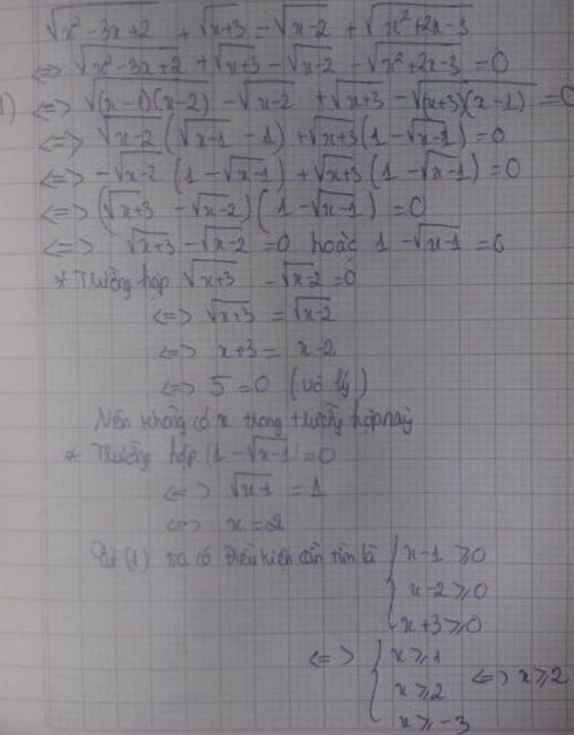 √(x²-3x+2) + √(x+3) = √(x-2) + √(x²+2x-3)
<=> √(x²-3x+2) + √(x+3) - √(x-2) - √(x²+2x-3) = 0
1) <=> √((x-1)(x-2)) - √(x-2) + √(x+3) - √((x+3)(x-1)) = 0
<=> √(x-2) (√(x-1) - 1) + √(x+3) (1 - √(x-1)) = 0
<=> -√(x-2) (1 - √(x-1)) + √(x+3) (1 - √(x-1)) = 0
<=> (√(x+3) - √(x-2)) (1 - √(x-1)) = 0
<=> √(x+3) - √(x-2) = 0 hoặc 1 - √(x-1) = 0
* Trường hợp √(x+3) - √(x-2) = 0
<=> √(x+3) = √(x-2)
<=> x+3 = x-2
<=> 5 = 0 (vô lý)
Nên không có x trong trường hợp này
* Trường hợp 1 - √(x-1) = 0
<=> √(x-1) = 1
<=> x = 2
Từ (1) ta có điều kiện cần tìm là { x-1 ≥ 0
x-2 ≥ 0
x+3 ≥ 0
<=> { x ≥ 1
x ≥ 2 <=> x ≥ 2
x ≥ -3